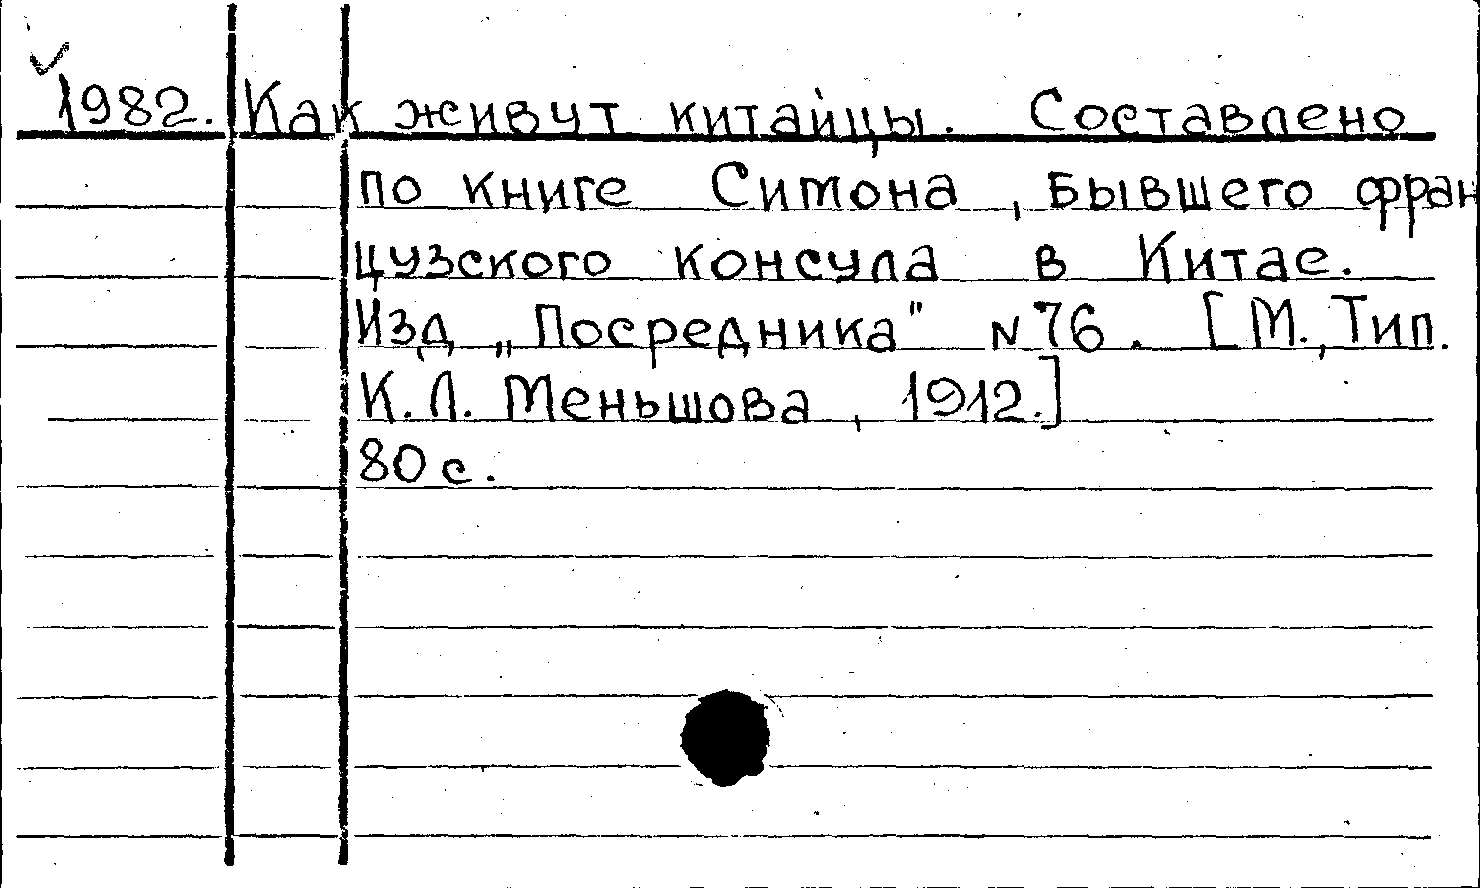 1982. Как живут китайцы. Составлено
по книге Симона, бывшего фран
цузского консула в Китае.
Изд „Посредника" N 76. [М., Тип.
К.Л. Меньшова, 1912.]
80 с.